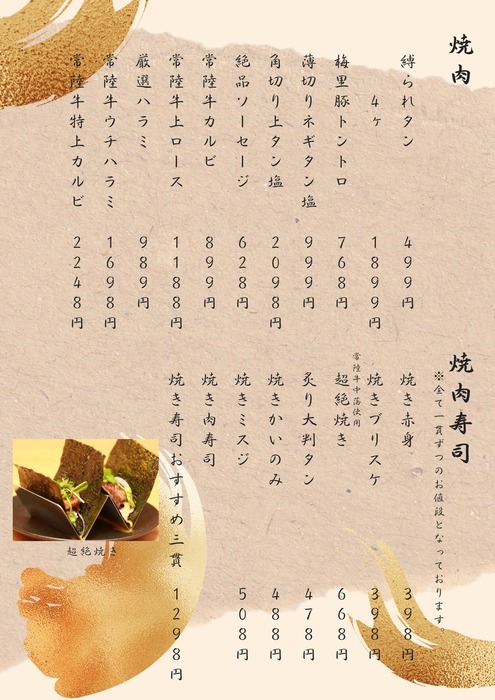 焼肉
縛られタン 499円
4ヶ 1899円
梅里豚トントロ 768円
薄切りネギタン塩 999円
角切り上タン塩 2098円
絶品ソーセージ 628円
常陸牛カルビ 899円
常陸牛上ロース 1188円
厳選ハラミ 989円
常陸牛ウチハラミ 1698円
常陸牛特上カルビ 2248円
焼肉寿司
※全て一貫ずつのお値段となっております。
焼き赤身 398円
焼きブリスケ 398円
常陸牛中落使用
超絶焼き 668円
炙り大判タン 478円
焼きかいのみ 488円
焼きミスジ 508円
焼き肉寿司
焼き寿司おすすめ三貫 1298円
超絶焼き